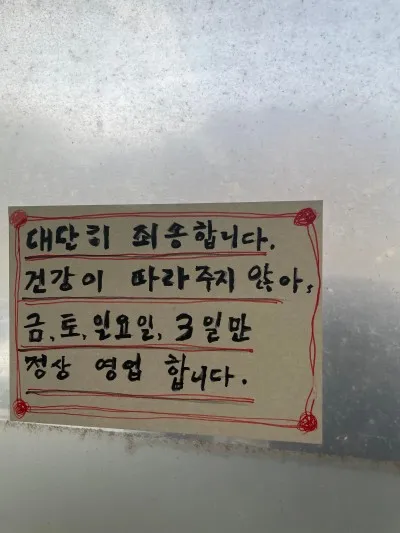 대단히 죄송합니다.
건강이 따라주지 않아,
금, 토, 일요일, 3일만
정상 영업 합니다.